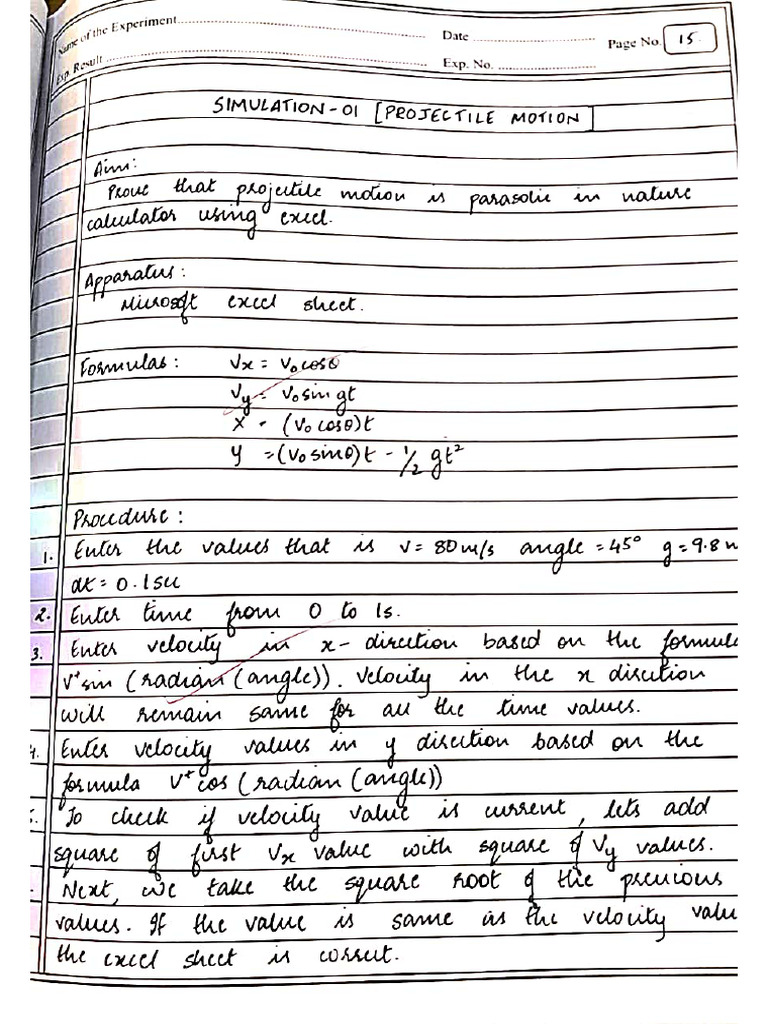 Name of the Experiment
Date
Page No. 15.
Exp. Result
Exp. No.
SIMULATION-01 [PROJECTILE MOTION]
Aim:
Prove that projectile motion is parasolic in nature
calculator using excel.
Apparatus:
Microsoft excel sheet.
Formulas: Vx = V₀cosθ
Vy = V₀sin gt
X = (V₀cosθ)t
Y = (V₀sinθ)t - 1/2 gt²
Procedure:
1. Enter the values that is V = 80m/s angle = 45° g = 9.8 m
dt = 0.1sec
2. Enter time from 0 to 1s.
3. Enter velocity in x-direction based on the formula
V*sin (radian(angle)). Velocity in the x direction
will remain same for all the time values.
4. Enter velocity values in y direction based on the
formula V*cos (radian(angle))
5. To check if velocity value is current, lets add
square of first Vx value with square of Vy values.
Next, we take the square root of the previous
values. If the value is same as the velocity valu
the excel sheet is correct.